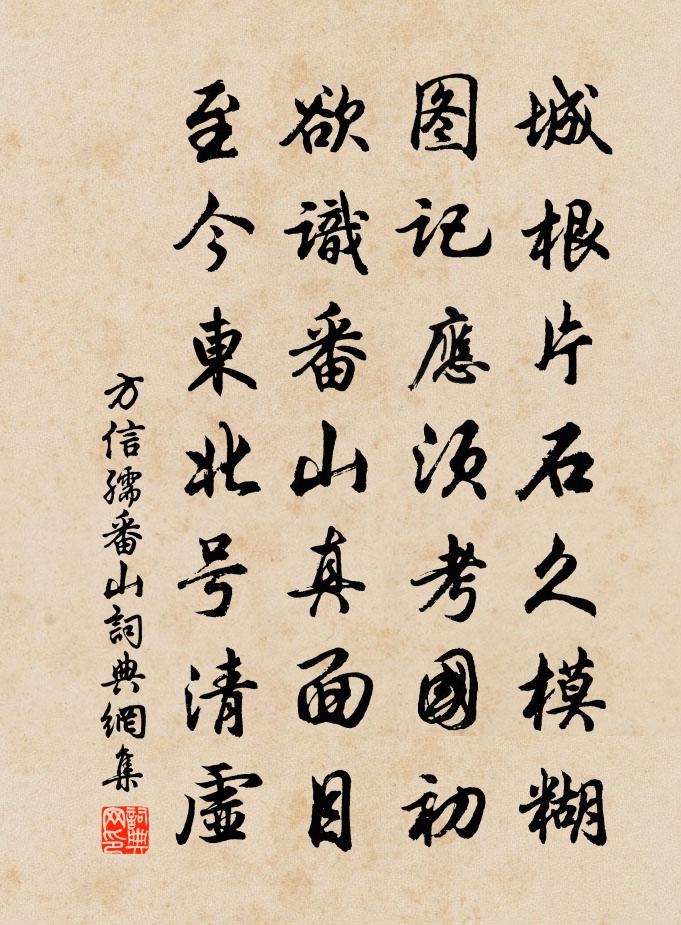 城根片石久模糊
图记應须考國初
欲識番山真面目
至今東北号清虚
方信孺番山詞典網集
詞典网印